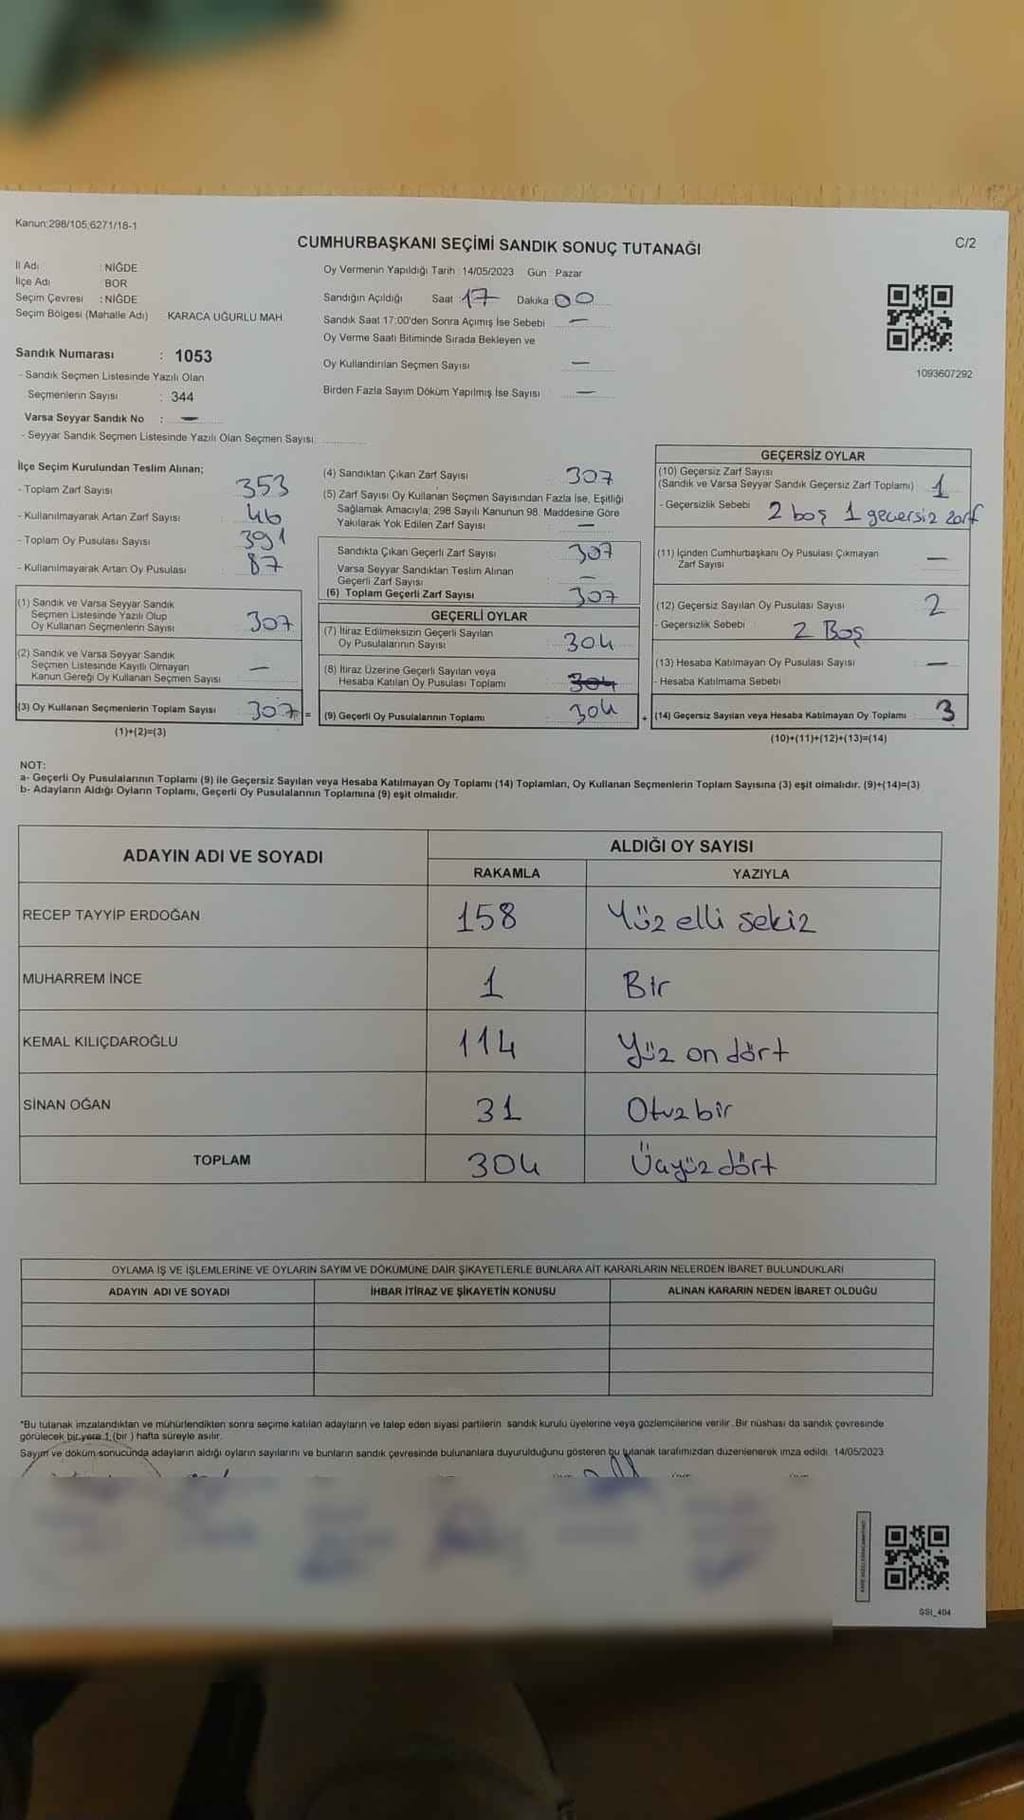 Kanun:298/105,6271/18-1
CUMHURBAŞKANI SEÇİMİ SANDIK SONUÇ TUTANAĞI
C/2
İl Adı : NİĞDE
İlçe Adı BOR
Seçim Çevresi : NİĞDE
Seçim Bölgesi (Mahalle Adı) KARACA UĞURLU MAH
Sandık Numarası : 1053
- Sandık Seçmen Listesinde Yazılı Olan
Seçmenlerin Sayısı : 344
Varsa Seyyar Sandık No : —
- Seyyar Sandık Seçmen Listesinde Yazılı Olan Seçmen Sayısı
Oy Vermenin Yapıldığı Tarih : 14/05/2023 Gün : Pazar
Sandığın Açıldığı Saat : 17 Dakika : 00
Sandık Saat 17:00'den Sonra Açımış İse Sebebi —
Oy Verme Saati Bitiminde Sırada Bekleyen ve
Oy Kullandırılan Seçmen Sayısı —
Birden Fazla Sayım Döküm Yapılmış İse Sayısı —
1093607292
İlçe Seçim Kurulundan Teslim Alınan;
- Toplam Zarf Sayısı 353
- Kullanılmayarak Artan Zarf Sayısı 46
- Toplam Oy Pusulası Sayısı 391
- Kullanılmayarak Artan Oy Pusulası 87
(1) Sandık ve Varsa Seyyar Sandık
Seçmen Listesinde Yazılı Olup
Oy Kullanan Seçmenlerin Sayısı 307
(2) Sandık ve Varsa Seyyar Sandık
Seçmen Listesinde Kayıtlı Olmayan
Kanun Gereği Oy Kullanan Seçmen Sayısı —
(3) Oy Kullanan Seçmenlerin Toplam Sayısı 307 =
(1)+(2)=(3)
(4) Sandıktan Çıkan Zarf Sayısı 307
(5) Zarf Sayısı Oy Kullanan Seçmen Sayısından Fazla İse, Eşitliği
Sağlamak Amacıyla; 298 Sayılı Kanunun 98. Maddesine Göre
Yakılarak Yok Edilen Zarf Sayısı —
Sandıkta Çıkan Geçerli Zarf Sayısı 307
Varsa Seyyar Sandıktan Teslim Alınan
Geçerli Zarf Sayısı —
(6) Toplam Geçerli Zarf Sayısı 307
GEÇERLİ OYLAR
(7) İtiraz Edilmeksizin Geçerli Sayılan
Oy Pusulalarının Sayısı 304
(8) İtiraz Üzerine Geçerli Sayılan veya
Hesaba Katılan Oy Pusulası Toplamı 304
(9) Geçerli Oy Pusulalarının Toplamı 304 +
GEÇERSİZ OYLAR
(10) Geçersiz Zarf Sayısı
(Sandık ve Varsa Seyyar Sandık Geçersiz Zarf Toplamı) 1
- Geçersizlik Sebebi 2 boş 1 geçersiz zarf
(11) İçinden Cumhurbaşkanı Oy Pusulası Çıkmayan
Zarf Sayısı —
(12) Geçersiz Sayılan Oy Pusulası Sayısı 2
- Geçersizlik Sebebi 2 Boş
(13) Hesaba Katılmayan Oy Pusulası Sayısı —
- Hesaba Katılmama Sebebi
(14) Geçersiz Sayılan veya Hesaba Katılmayan Oy Toplamı 3
(10)+(11)+(12)+(13)=(14)
NOT:
a- Geçerli Oy Pusulalarının Toplamı (9) ile Geçersiz Sayılan veya Hesaba Katılmayan Oy Toplamı (14) Toplamları, Oy Kullanan Seçmenlerin Toplam Sayısına (3) eşit olmalıdır. (9)+(14)=(3)
b- Adayların Aldığı Oyların Toplamı, Geçerli Oy Pusulalarının Toplamına (9) eşit olmalıdır.
ADAYIN ADI VE SOYADI
ALDIĞI OY SAYISI
RAKAMLA YAZIYLA
RECEP TAYYİP ERDOĞAN 158 Yüz elli sekiz
MUHARREM İNCE 1 Bir
KEMAL KILIÇDAROĞLU 114 Yüz on dört
SİNAN OĞAN 31 Otuz bir
TOPLAM 304 Üçyüz dört
OYLAMA İŞ VE İŞLEMLERİNE VE OYLARIN SAYIM VE DÖKÜMÜNE DAİR ŞİKAYETLERLE BUNLARA AİT KARARLARIN NELERDEN İBARET BULUNDUKLARI
ADAYIN ADI VE SOYADI İHBAR İTİRAZ VE ŞİKAYETİN KONUSU ALINAN KARARIN NEDEN İBARET OLDUĞU
*Bu tutanak imzalandıktan ve mühürlendikten sonra seçime katılan adayların ve talep eden siyasi partilerin sandık kurulu üyelerine veya gözlemcilerine verilir. Bir nüshası da sandık çevresinde
görülecek bir yere 1 (bir) hafta süreyle asılır.
Sayım ve döküm sonucunda adayların aldığı oyların sayılarını ve bunların sandık çevresinde bulunanlara duyurulduğunu gösteren bu tutanak tarafımızdan düzenlenerek imza edildi. 14/05/2023
SSI_404